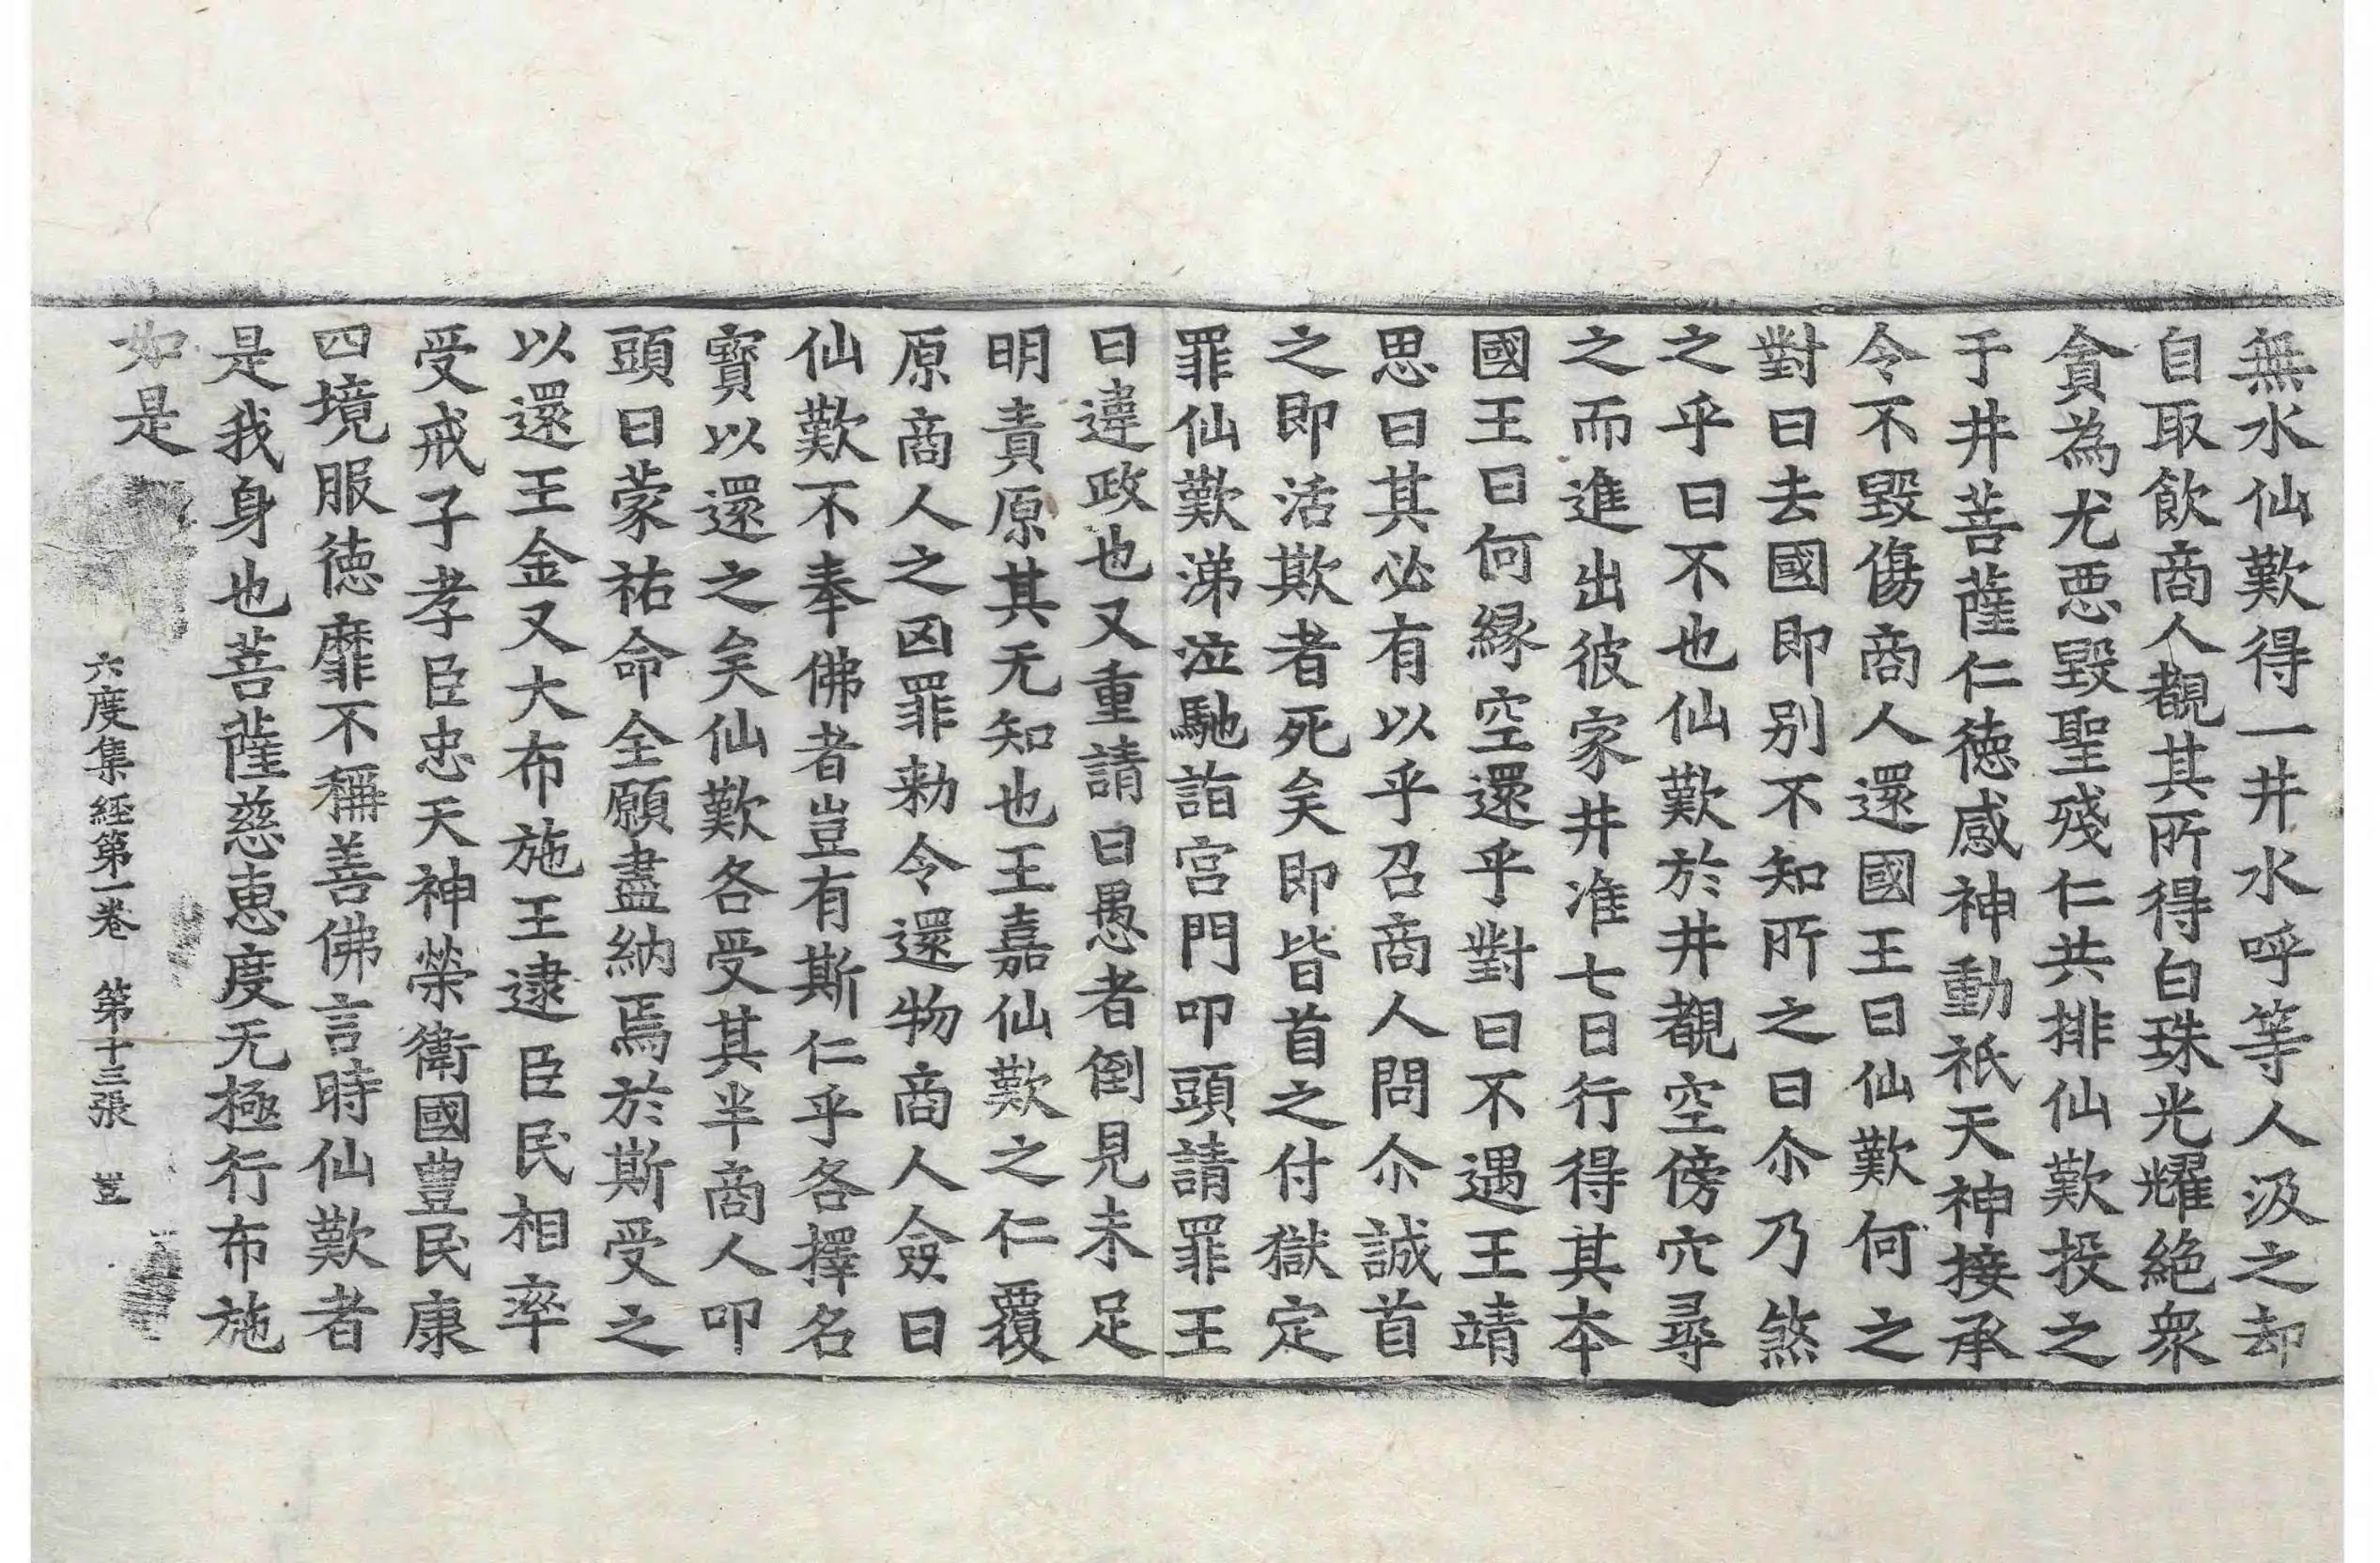 無水仙歎得一井水呼等人汲之却
自取飲商人覩其所得白珠光耀絶衆
貪為尤惡毀聖殘仁共排仙歎投之
于井菩薩仁德感神動祇天神接承
令不毀傷商人還國王曰仙歎何之
對曰去國即別不知所之曰尒乃煞
之乎曰不也仙歎於井覩空傍穴尋
之而進出彼家井准七日行得其本
國王曰何緣空還乎對曰不遇王靖
思曰其必有以乎召商人問尒誠首
之即活欺者死矣即皆首之付獄定
罪仙歎涕泣馳詣宮門叩頭請罪王
曰違政也又重請曰愚者倒見未足
明責原其无知也王嘉仙歎之仁覆
原商人之凶罪勑令還物商人僉曰
仙歎不奉佛者豈有斯仁乎各擇名
寶以還之矣仙歎各受其半商人叩
頭曰蒙祐命全願盡納焉於斯受之
以還王金又大布施王逮臣民相率
受戒子孝臣忠天神榮衛國豊民康
四境服德靡不稱善佛言時仙歎者
是我身也菩薩慈惠度无極行布施
如是
六度集經第一卷 第十三張